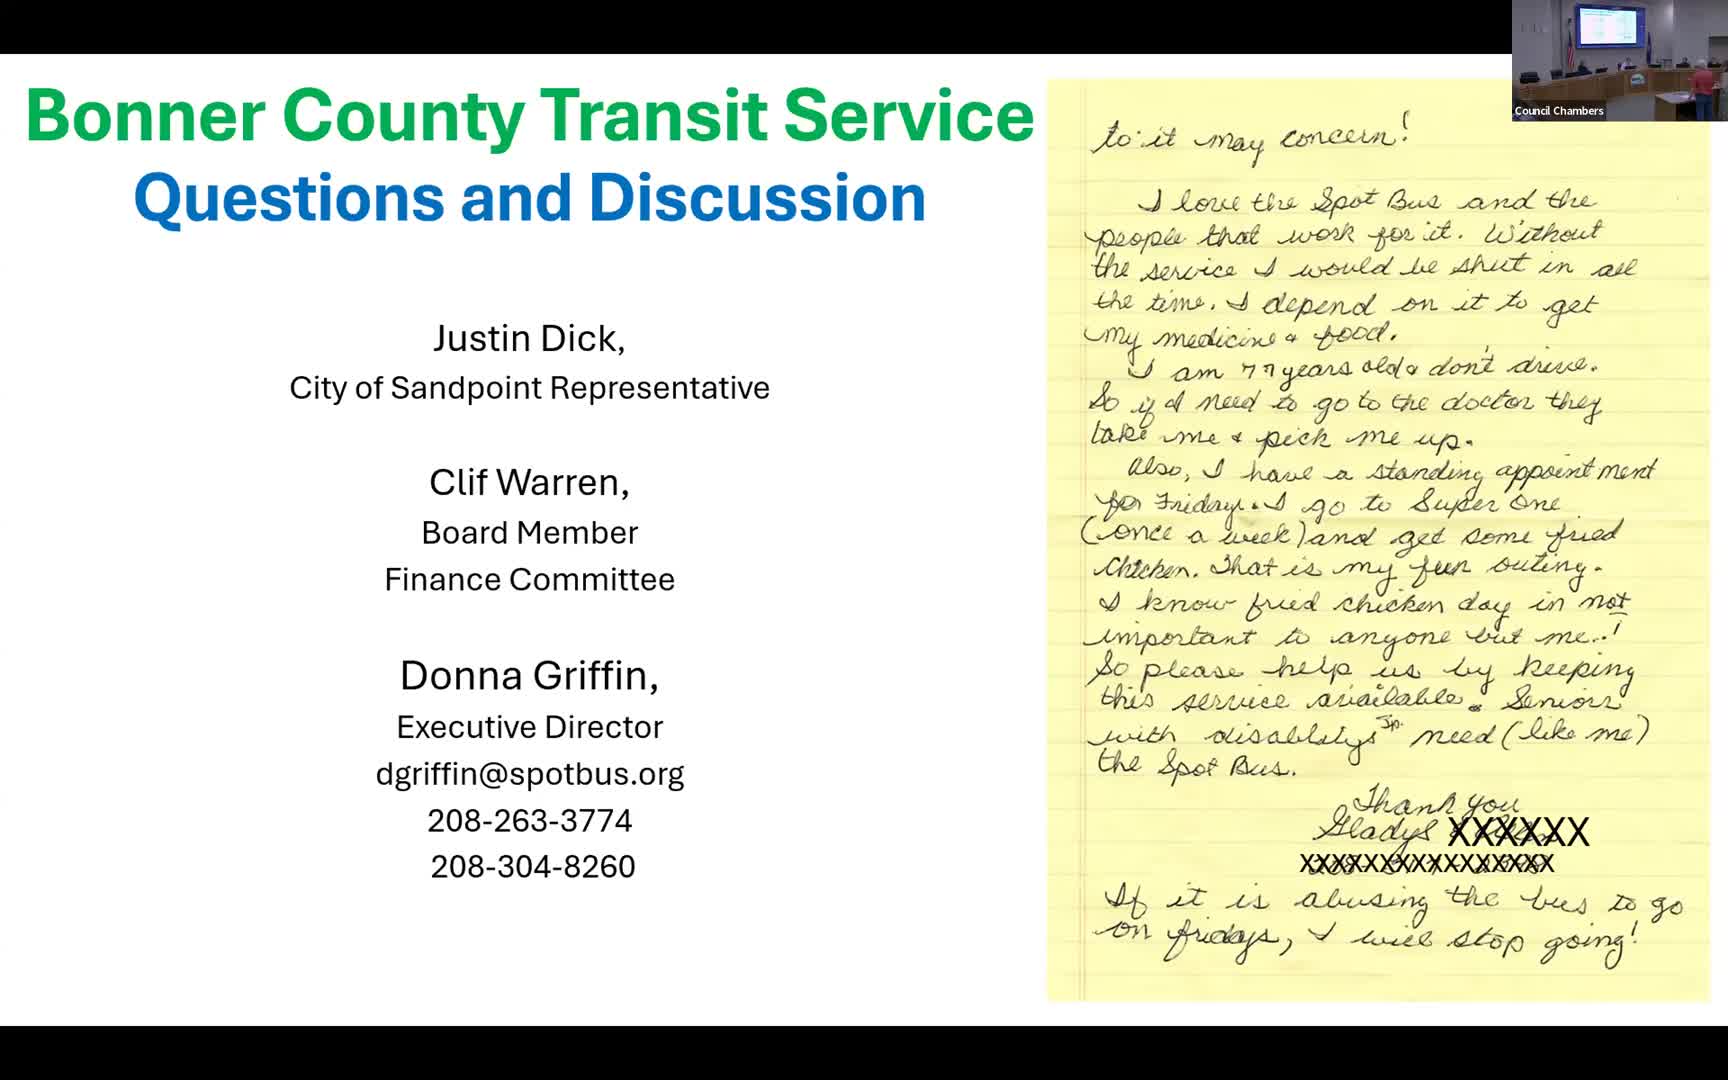 Bonner County Transit Service
Questions and Discussion
Justin Dick,
City of Sandpoint Representative
Clif Warren,
Board Member
Finance Committee
Donna Griffin,
Executive Director
dgriffin@spotbus.org
208-263-3774
208-304-8260
Council Chambers
to: it may concern!
I love the Spot Bus and the
people that work for it. Without
the service I would be shut in all
the time. I depend on it to get
my medicine & food.
I am 77 years old & don't drive.
So if I need to go to the doctor they
take me & pick me up.
Also, I have a standing appointment
for Friday. I go to Super One
(once a week) and get some fried
chicken. That is my fun outing.
I know fried chicken day in not
important to anyone but me..!
So please help us by keeping
this service available. Seniors
with disablitys Sp. need (like me)
the Spot Bus.
Thank you
Gladys XXXXXX
XXXXXXXXXXXXXXXX
If it is abusing the bus to go
on fridays, I will stop going!